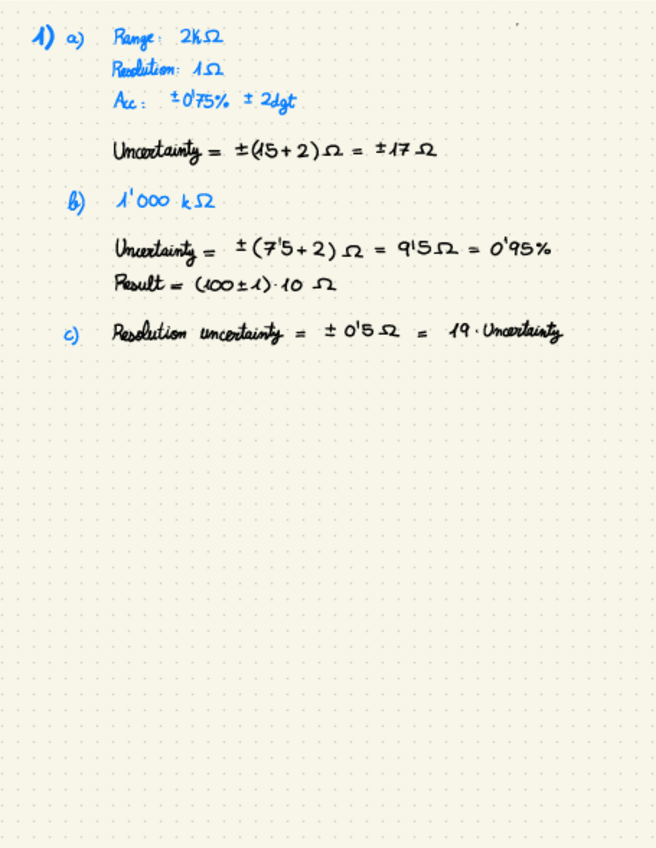 1) a) Range: 2kΩ
Resolution: 1Ω
Acc: ±0'75% ± 2dgt
Uncertainty = ±(15+2)Ω = ±17Ω
b) 1'000 kΩ
Uncertainty = ±(7'5+2)Ω = 9'5Ω = 0'95%
Result = (100±1)·10 Ω
c) Resolution uncertainty = ±0'5Ω = 19·Uncertainty